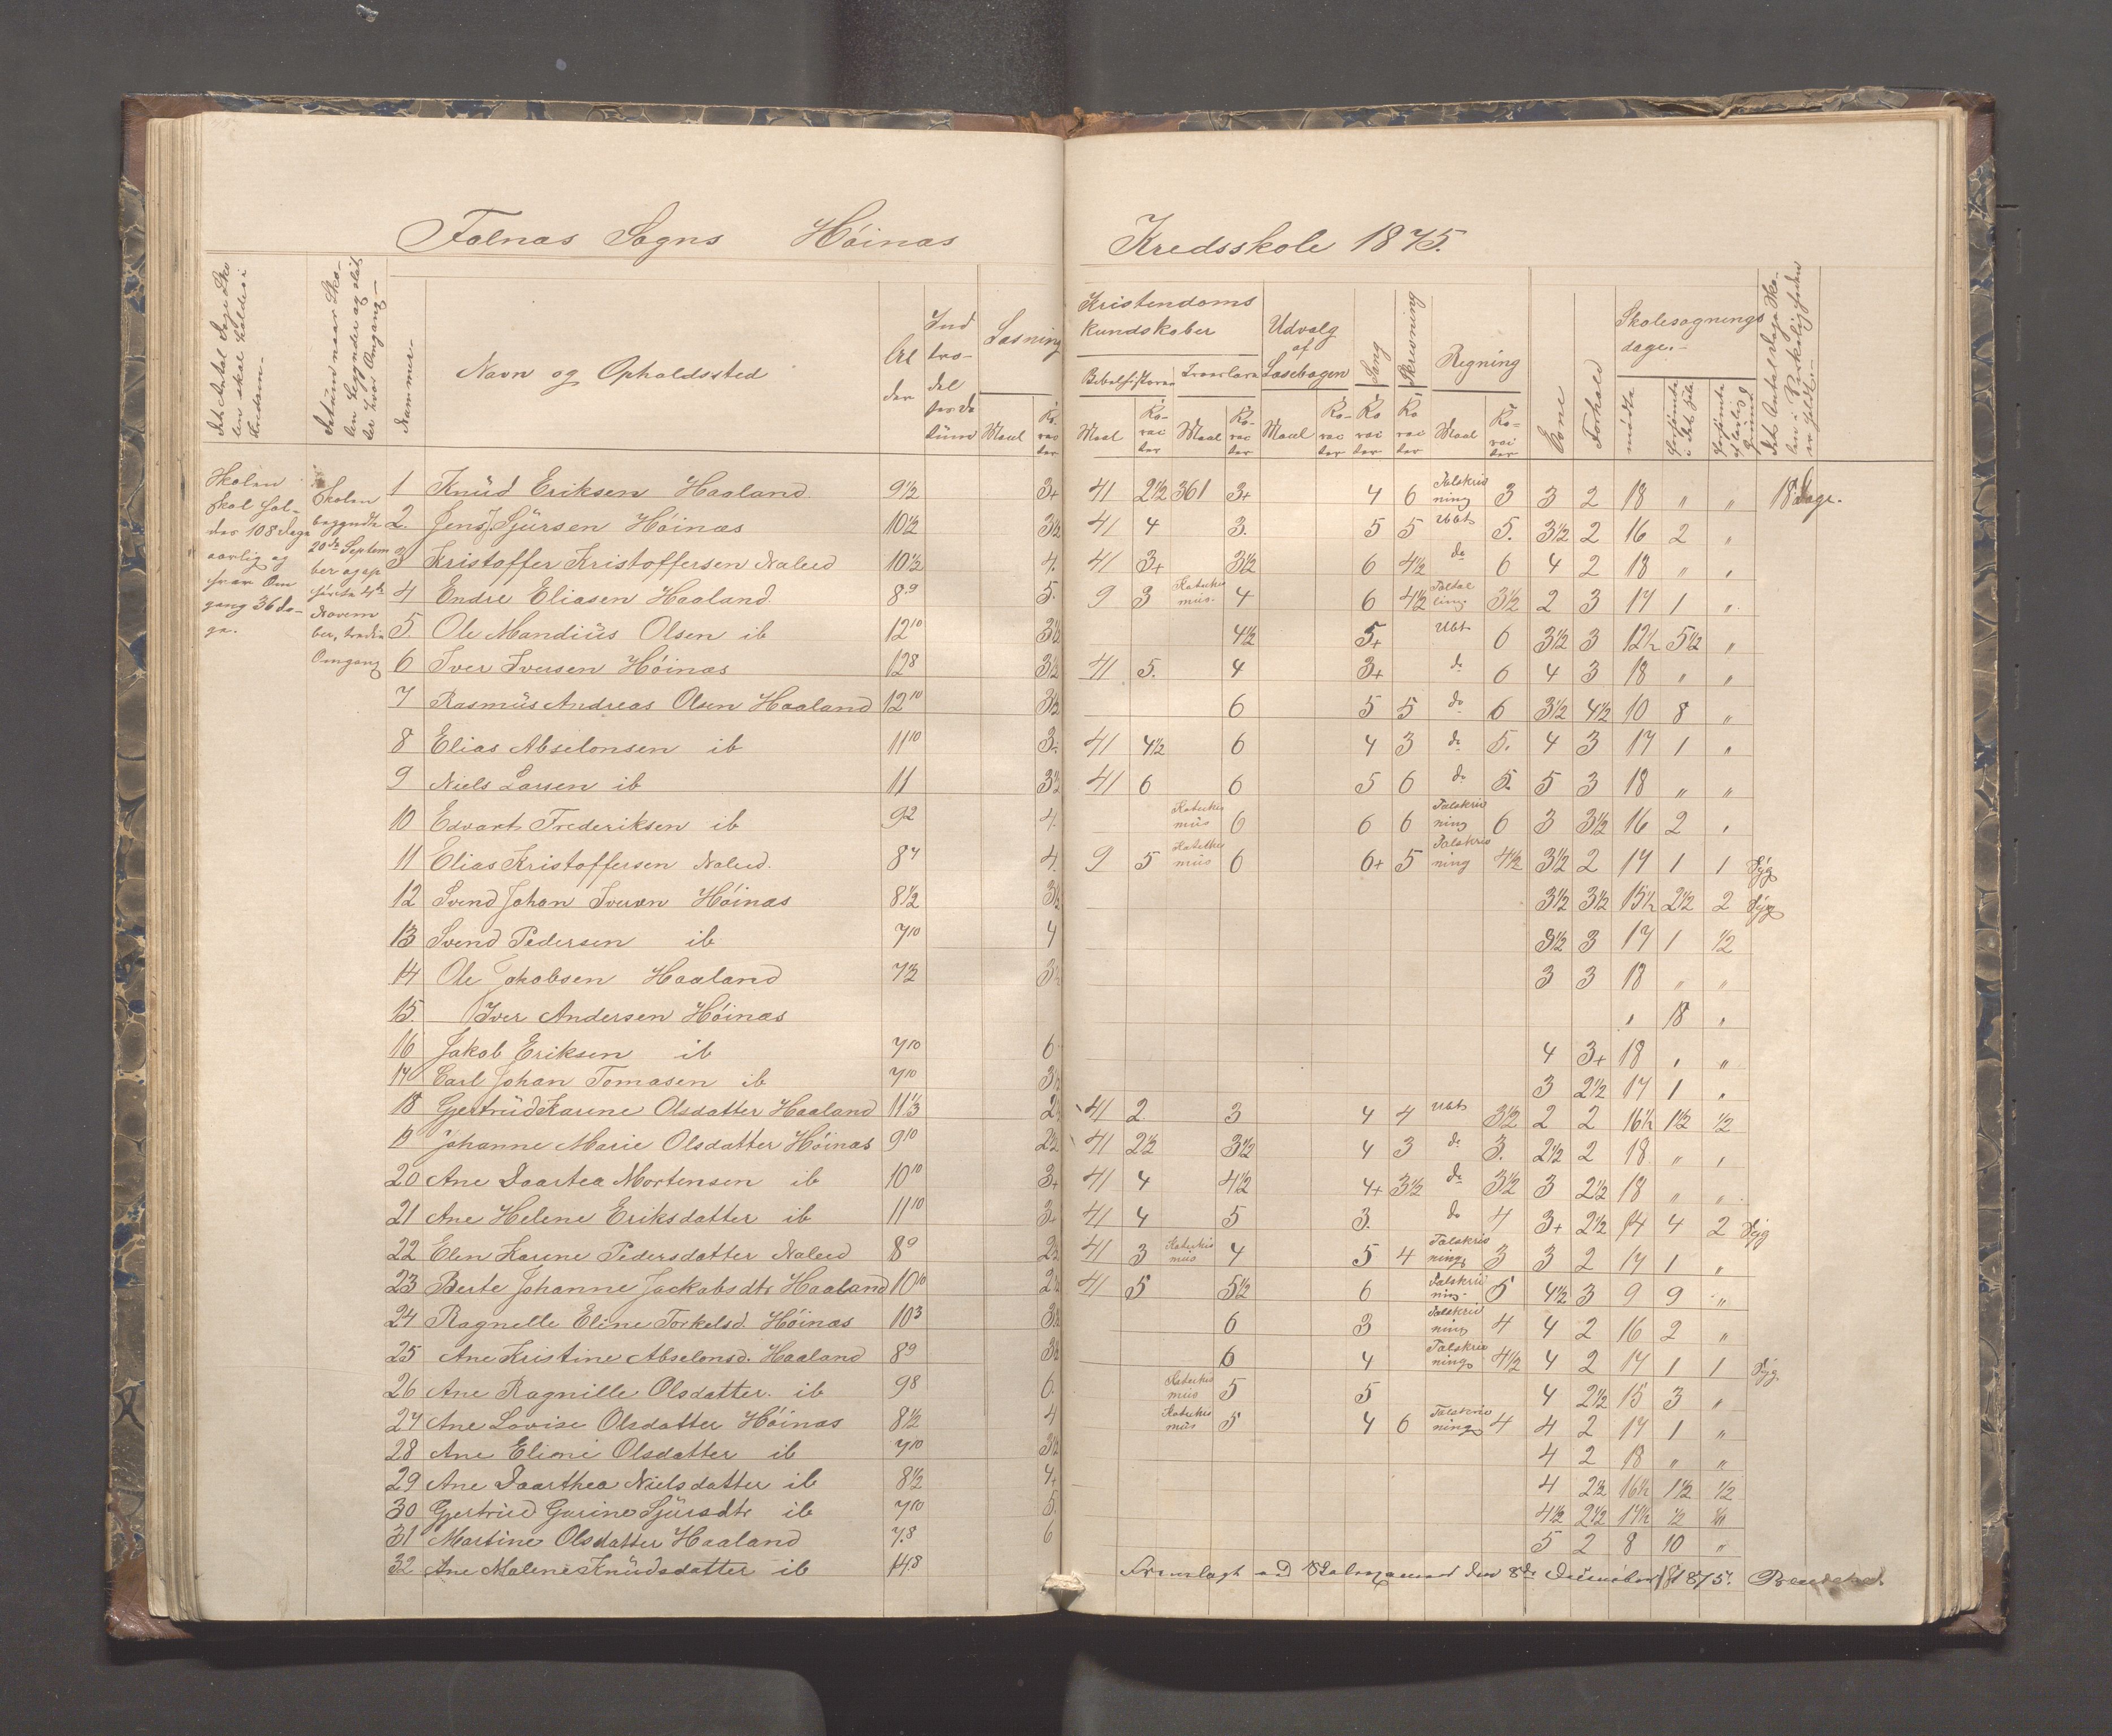 Falnæs Sogns Höinæs Kredsskole 1875.
Nummer
Navn og Opholdssted
Al der
Ind træ del ses da tüm
Læsning
Maal Ka rac ter
Kristendoms kundskaber
Bibelhistorie Troeslære
Maal Ka rac ter Maal Ka rac ter
Udvalg af Læsebogen
Maal Ka rac ter
Sang Ka rac ter
Skrivning Ka rac ter
Regning
Maal Ka rac ter
Evne
Forhold
Skolesøgnings dage.
mødte
Skolen skal hol- des 108 Dage aarlig og hver Om gang 36 Da- ge.
Skolen begyndte 20de Septem ber og op hørte 4de Novem ber, tredie Omgang
1 Knüd Eriksen Haaland 9½ 3+ 41 2½ 361 3+ 4 6 Talskriv ning 3 3 2 18 " " 18 Dage.
2. Jens Sjürsen Höinæs 10½ 3½ 41 4 3. 5 5 Ubts 5. 3½ 2 16 2 "
3 Kristoffer Kristoffersen Nalud 10½ 4. 41 3+ 3½ 6 4½ do 6 4 2 18 " "
4 Endre Eliasen Haaland 8.9 5. 9 3 Katekis müs. 4 6 4½ 3½ 2 3 17 1 "
5. Ole Mandiüs Olsen ib 12 10 3½ 4½ 5+ Ubts 6 3½ 3 12½ 5½ "
6 Iver Iversen Höinæs 12 8 3½ 41 5. 4 3+ do 6 4 3 18 " "
7 Rasmüs Andreas Olsen Haaland 12 10 3½ 6 5 5 do 6 3½ 4½ 10 8 "
8 Elias Abselonsen ib 11 10 3. 41 4½ 6 4 3 do 5. 4 3 17 1 "
9 Niels Larsen ib 11 3½ 41 6 6 5 6 do 5. 5 3 18 " "
10 Edvart Frederiksen ib 9 2 4. Katekis müs 6 6 6 Talskriv ning 6 3 3½ 16 2 "
11 Elias Kristoffersen Nalud. 8 7 4. 9 5 Katekis müs 6 6+ 5 Talskriv ning 4½ 3½ 2 17 1 1 Syg
12 Svend Johan Iversen Höinæs 8½ 3½ 3½ 3½ 15½ 2½ 2 Syg
13 Svend Pedersen ib 7 10 4 3½ 3 17 1 ½
14 Ole Jakobsen Haaland 7½ 3½ 3 3 18 " "
15. Iver Andersen Höinæs " 18 "
16 Jakob Eriksen ib 7 10 6 4 3+ 18 " "
17 Carl Johan Tomasen ib 7 10 3½ 3 2½ 17 1 "
18 Gjertrüd Karine Olsdatter Haaland 11⅓ 2 41 2 3 4 4 Ubts 3½ 2 2 16½ 1½ ½
19 Johanne Marie Olsdatter Höinæs 9 10 2½ 41 2½ 3½ 4 3 do 3. 2½ 2 18 " "
20 Ane Daartea Mortensen ib 10 10 3+ 41 4 4½ 4+ 3½ do 3½ 3 2½ 18 " "
21 Ane Helene Eriksdatter ib 11 10 3+ 41 4 5 3. do 4 3+ 2½ 14 4 2 Syg
22 Elen Karine Pedersdatter Nalud 8 9 2½ 41 3 Katekis müs 4 5 4 Talskriv ning 3 3 2 17 1 "
23 Berte Johanne Jackobsdtr Haaland 10 10 2½ 41 5 5½ 6 Talskriv ning 5 4½ 3 9 9 "
24 Ragnelle Eline Torkelsd. Höinæs 10 3 3½ 6 3 Talskriv ning 4 4 2 16 2 "
25 Ane Kristine Abselonsd. Haaland 8 9 3½ 6 4 Talskriv ning 4½ 4 2 17 1 1 Syg.
26 Ane Ragnille Olsdatter. ib 9 8 6. Katekis müs 5 5 4 2½ 15 3 "
27 Ane Lovise Olsdatter Höinæs 8½ 4 Katekis müs 5 4 6 Talskriv ning 4 4 2 17 1 "
28 Ane Eline Olsdatter ib 7 10 3½ 4 2 18 " "
29 Ane Daarthea Nielsdatter ib 8½ 4+ 4 2½ 16½ 1½ ½
30 Gjertrüd Gurine Sjürsdtr ib 7 10 5. 4½ 2½ 17½ ½
31 Martine Olsdatter Haaland 7.8 6 5 2 8 10 "
32 Ane Malene Knüdsdatter ib 14.8
Fremlagt ved den 8de 1875.